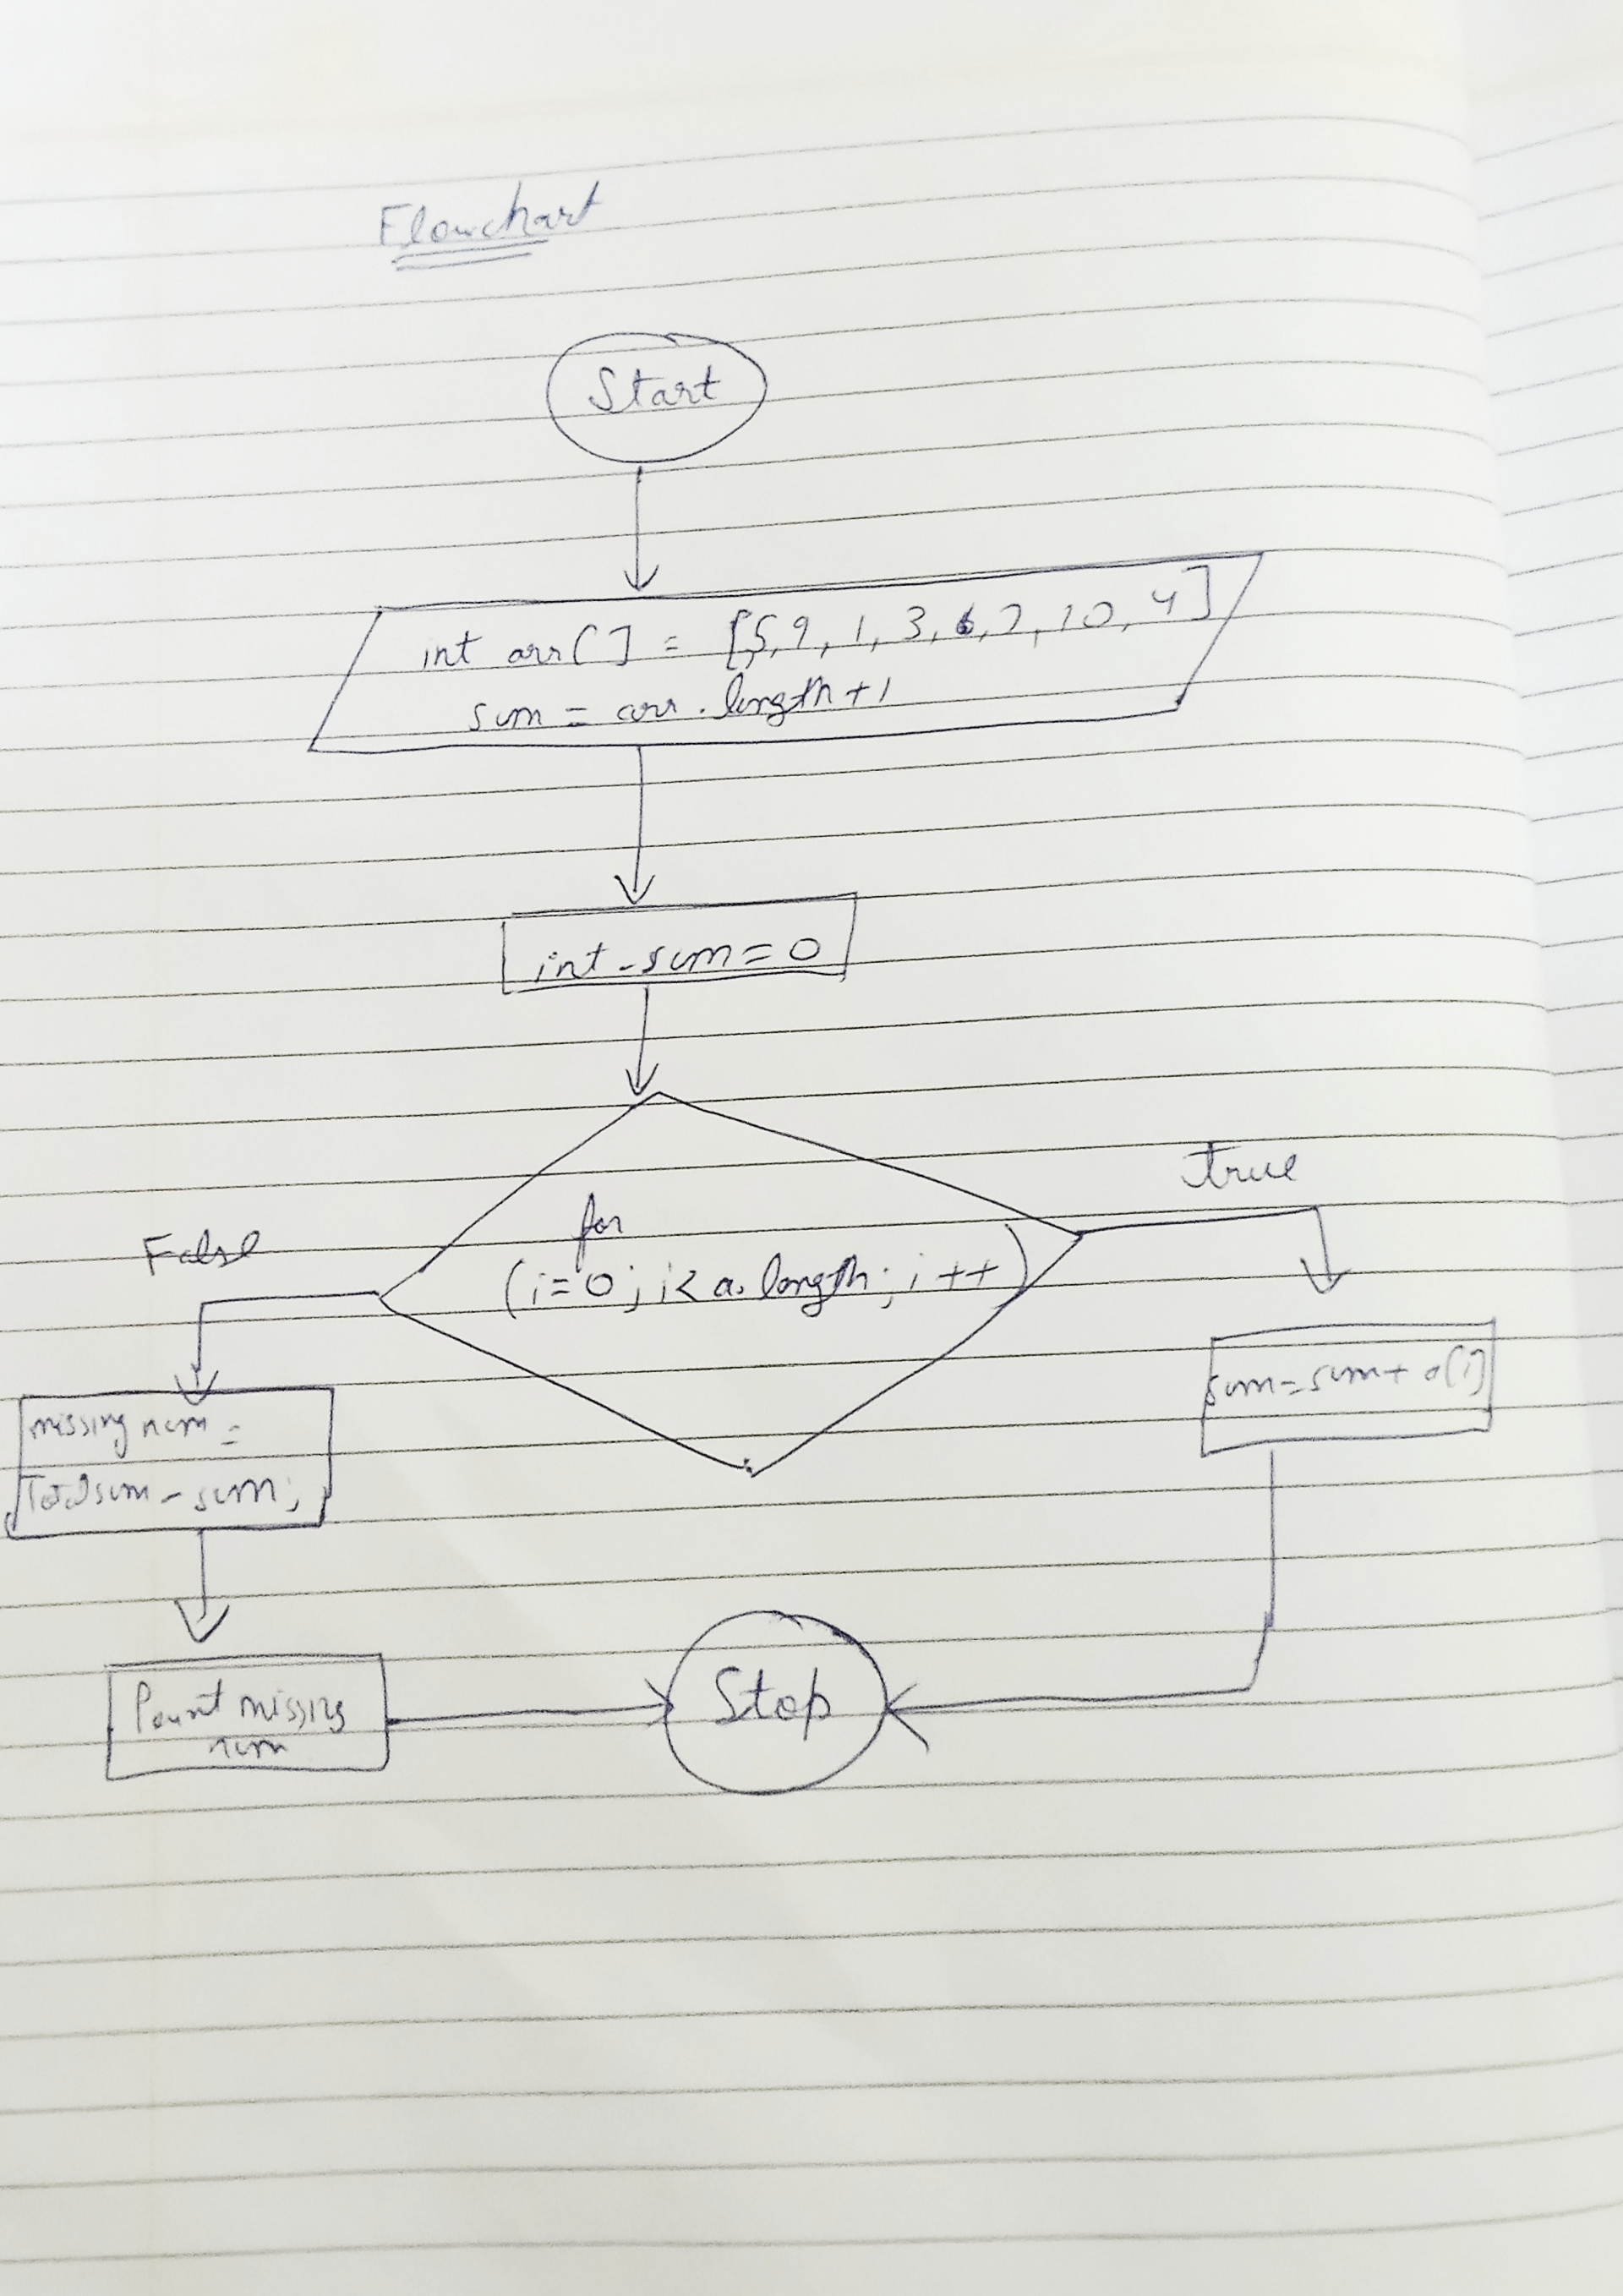 Flowchart
Start
int arr[] = [5, 9, 1, 3, 6, 7, 10, 4]
sum = arr.length+1
int - sum = 0
for
(i=0; i< a.length; i++)
True
False
sum=sum+a[i]
missing num =
Totalsum - sum;
Print missing
num
Stop